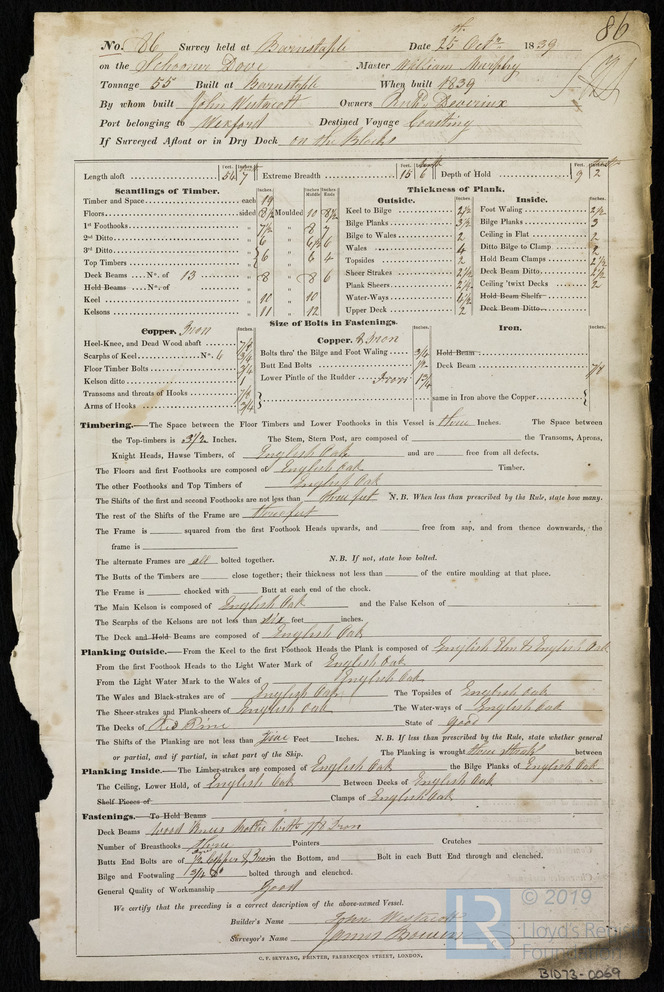 86
No. 86 Survey held at Barnstaple Date 25th Octr 1839
on the Schooner Dove Master William Murphy
Tonnage 55 Built at Barnstaple When built 1839
By whom built John Westacott Owners Devereux
Port belonging to Wexford Destined Voyage Coasting
If Surveyed Afloat or in Dry Dock on the Blocks
Length aloft Feet. 54 Inches. 7 Extreme Breadth Feet. 15 6 Depth of Hold Feet. 9 2
Scantlings of Timber. Thickness of Plank.
Inches. Inches. Middle Inches. Ends Outside. Inches. Inside. Inches.
Timber and Space each 19 Keel to Bilge 2½ Foot Waling 2½
Floors sided 8½ Moulded 10 8½ Bilge Planks 3½ Bilge Planks 3
1st Foothooks " 7½ " 8 7 Bilge to Wales 2 Ceiling in Flat 2
2nd Ditto " 6 " 6½ 6 Wales 4 Ditto Bilge to Clamp 2
3rd Ditto Topsides 2 Hold Beam Clamps 2½
Top Timbers " 6 " 6 4 Sheer Strakes 2½ Deck Beam Ditto 2½
Deck Beams No. of 13 " 8 " 8 6 Plank Sheers 2½ Ceiling 'twixt Decks 2
Hold Beams No. of " " Water-Ways 6½ Hold Beam Shelfs
Keel " 10 " 10 Upper Deck 2 Deck Beam Ditto
Kelsons " 11 " 12
Size of Bolts in Fastenings.
Copper. Iron Inches. Copper. & Iron Inches. Iron. Inches.
Heel-Knee, and Dead Wood abaft 7/8 Bolts thro' the Bilge and Foot Waling 3/4 Hold Beam
Scarphs of Keel No. 6 3/4 Butt End Bolts Deck Beam 7/8
Floor Timber Bolts 3/4 Lower Pintle of the Rudder Iron 1¾
Kelson ditto 1
Transoms and throats of Hooks 7/8 same in Iron above the Copper
Arms of Hooks 3/4
Timbering.—The Space between the Floor Timbers and Lower Foothooks in this Vessel is three Inches. The Space between
the Top-timbers is 3½ Inches. The Stem, Stern Post, are composed of the Transoms, Aprons,
Knight Heads, Hawse Timbers, of English Oak and are free from all defects.
The Floors and first Foothooks are composed of English Oak Timber.
The other Foothooks and Top Timbers of English Oak
The Shifts of the first and second Foothooks are not less than three feet N.B. When less than prescribed by the Rule, state how many.
The rest of the Shifts of the Frame are three feet
The Frame is squared from the first Foothook Heads upwards, and free from sap, and from thence downwards, the
frame is
The alternate Frames are all bolted together. N.B. If not, state how bolted.
The Butts of the Timbers are close together; their thickness not less than of the entire moulding at that place.
The Frame is chocked with Butt at each end of the chock.
The Main Kelson is composed of English Oak and the False Kelson of
The Scarphs of the Kelsons are not less than six feet inches.
The Deck and Hold Beams are composed of English Oak
Planking Outside.—From the Keel to the first Foothook Heads the Plank is composed of English Elm & English Oak
From the first Foothook Heads to the Light Water Mark of English Oak
From the Light Water Mark to the Wales of English Oak
The Wales and Black-strakes are of English Oak The Topsides of English Oak
The Sheer-strakes and Plank-sheers of English Oak The Water-ways of English Oak
The Decks of Red Pine State of good
The Shifts of the Planking are not less than five Feet Inches. N.B. If less than prescribed by the Rule, state whether general
or partial, and if partial, in what part of the Ship. The Planking is wrought three strakes between
Planking Inside.—The Limber-strakes are composed of English Oak the Bilge Planks of English Oak
The Ceiling, Lower Hold, of English Oak Between Decks of English Oak
Shelf Pieces of Clamps of English Oak
Fastenings.—To Hold Beams
Deck Beams Wood Knees
Number of Breasthooks Three Pointers Crutches
Butts End Bolts are of Copper & Iron in the Bottom, and Bolt in each Butt End through and clenched.
Bilge and Footwaling 3/4 Do bolted through and clenched.
General Quality of Workmanship Good
We certify that the preceding is a correct description of the above-named Vessel.
Builder's Name John Westacott
Surveyor's Name James Bowen
C. F. SEYFANG, PRINTER, FARRINGDON STREET, LONDON.
LR © 2019
Lloyd's Register
Foundation
B1073-0069